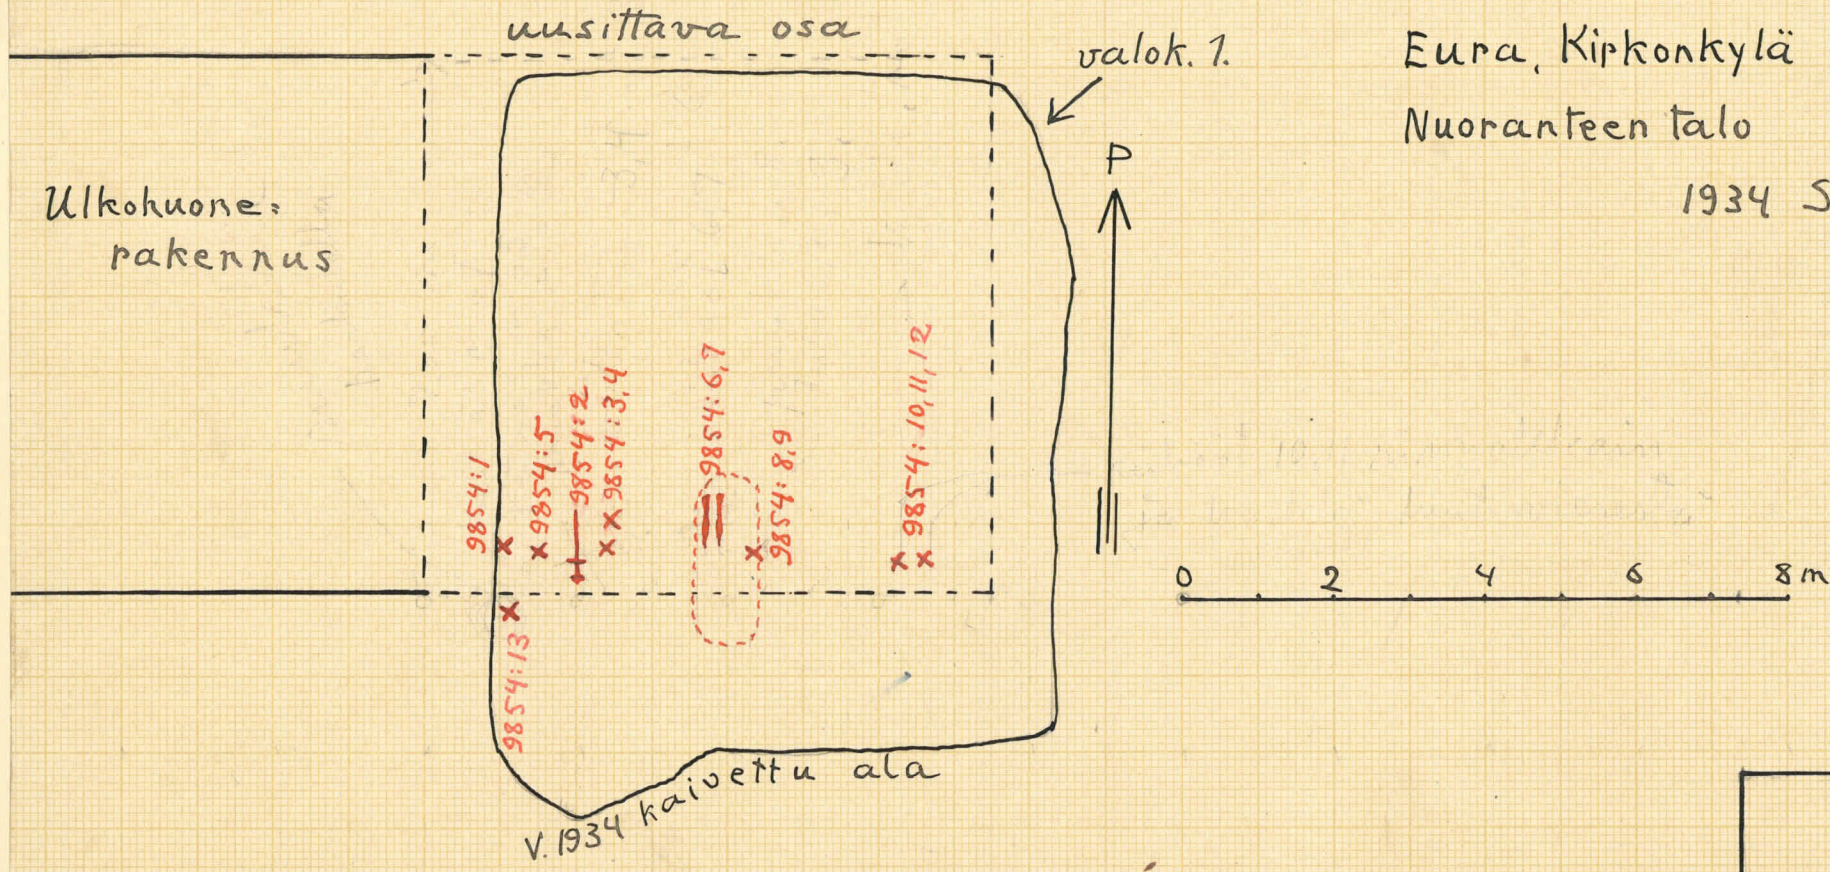 uusittava osa
valok. 1.
Eura, Kirkonkylä
Nuoranteen talo
1934 S
P
Ulkohuone=
rakennus
9854:1
9854:5
9854:2
9854:3,4
9854:6,7
9854:8,9
9854:10,11,12
9854:13
0 2 4 6 8 m
V. 1934 kaivettu ala